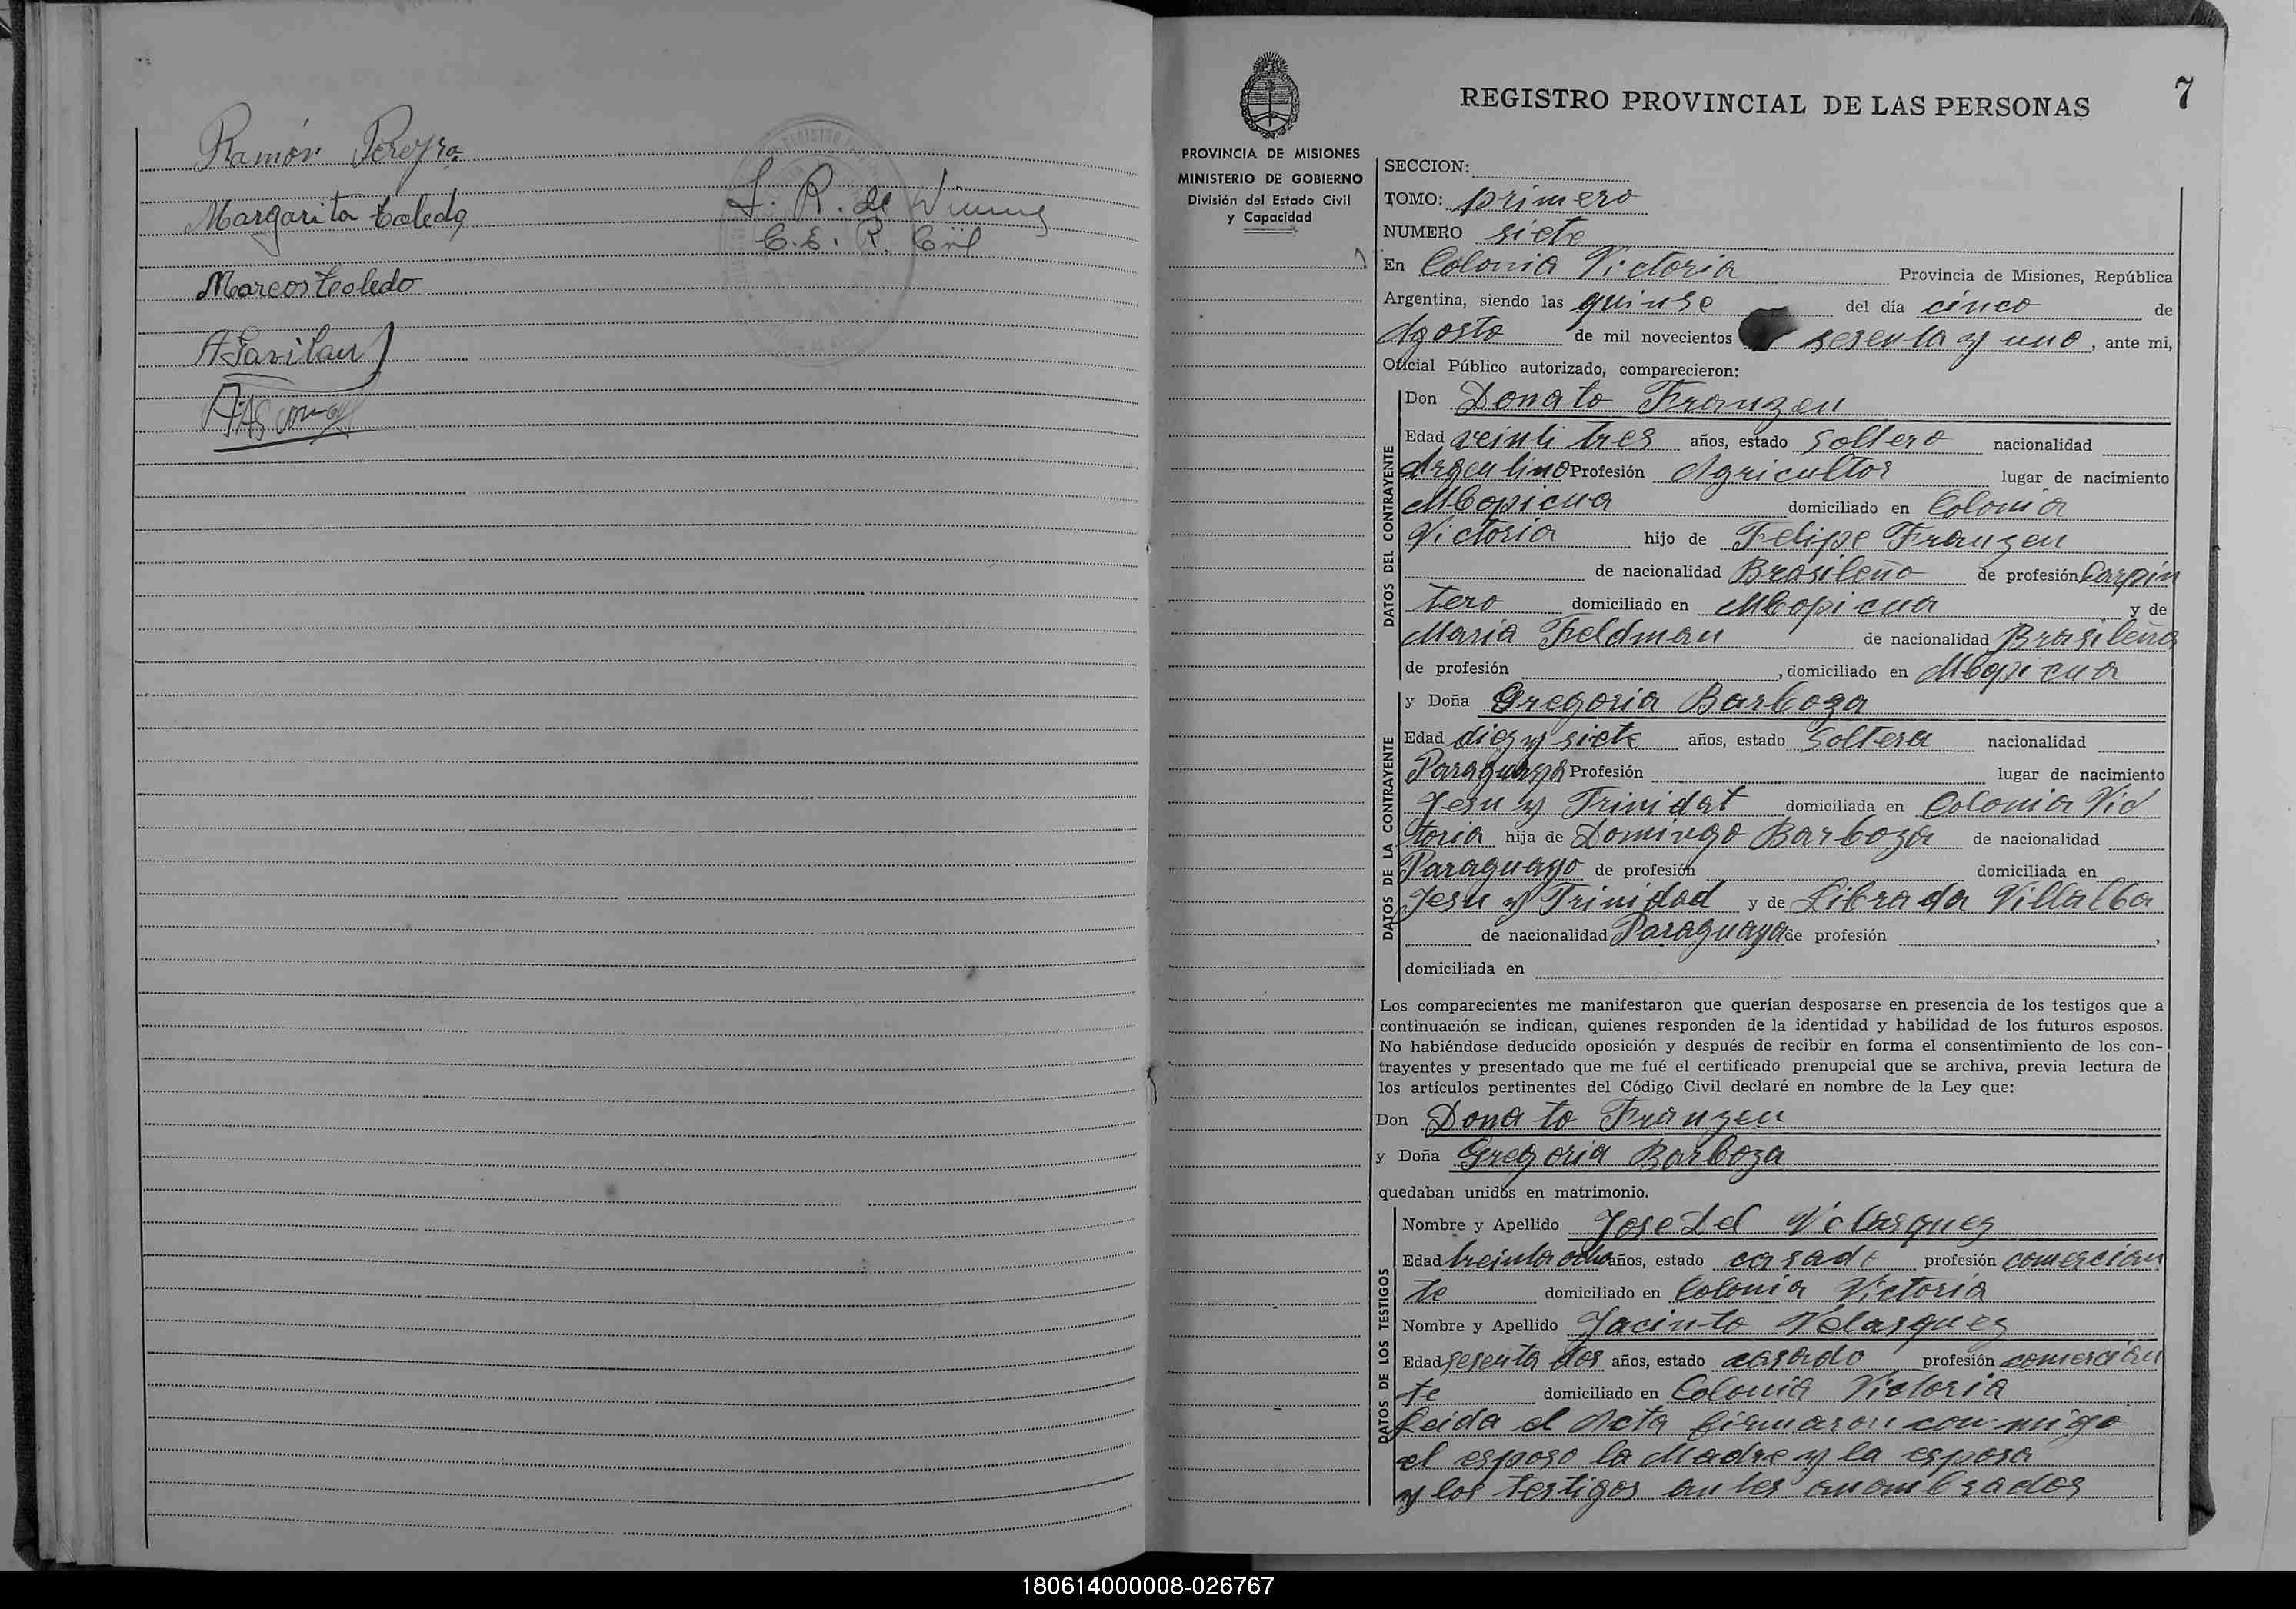 Ramón Pereyra
Margarita toledo
Marcos toledo
A Gavilan
S. R. de
C. E. R. Civil
7
REGISTRO PROVINCIAL DE LAS PERSONAS
PROVINCIA DE MISIONES
MINISTERIO DE GOBIERNO
División del Estado Civil
y Capacidad
SECCION:
TOMO: primero
NUMERO siete
En Colonia Victoria Provincia de Misiones, República
Argentina, siendo las quinse del día cinco de
Agosto de mil novecientos sesenta y uno, ante mi,
Oficial Público autorizado, comparecieron:
DATOS DEL CONTRAYENTE
Don Donato Franzen
Edad veinti tres años, estado Soltero nacionalidad
Argentino Profesión Agricultor lugar de nacimiento
Mbopicua domiciliado en Colonia
Victoria hijo de Felipe Franzen
de nacionalidad Brasileño de profesión Carpin
tero domiciliado en Mbopicua y de
Maria Feldman de nacionalidad Brasileña
de profesión , domiciliado en Mbopicua
DATOS DE LA CONTRAYENTE
y Doña Gregoria Barboza
Edad diez y siete años, estado Soltera nacionalidad
Paraguaya Profesión lugar de nacimiento
Jesu y Trinidat domiciliada en Colonia Vic
toria hija de Domingo Barboza de nacionalidad
Paraguayo de profesión domiciliada en
Jesu y Trinidad y de Librada Villalba
de nacionalidad Paraguaya de profesión ,
domiciliada en
Los comparecientes me manifestaron que querían desposarse en presencia de los testigos que a
continuación se indican, quienes responden de la identidad y habilidad de los futuros esposos.
No habiéndose deducido oposición y después de recibir en forma el consentimiento de los con-
trayentes y presentado que me fué el certificado prenupcial que se archiva, previa lectura de
los artículos pertinentes del Código Civil declaré en nombre de la Ley que:
Don Donato Franzen
y Doña Gregoria Barboza
quedaban unidos en matrimonio.
DATOS DE LOS TESTIGOS
Nombre y Apellido Jose Lel Velasquez
Edad treinta ocho años, estado casado profesión comercian
te domiciliado en Colonia Victoria
Nombre y Apellido Jacinto Velasquez
Edad sesenta dos años, estado casado profesión comercian
te domiciliado en Colonia Victoria
Leida el Acta firmaron con migo
el esposo la Madre y la esposa
y los testigos antes anombrados
180614000008-026767